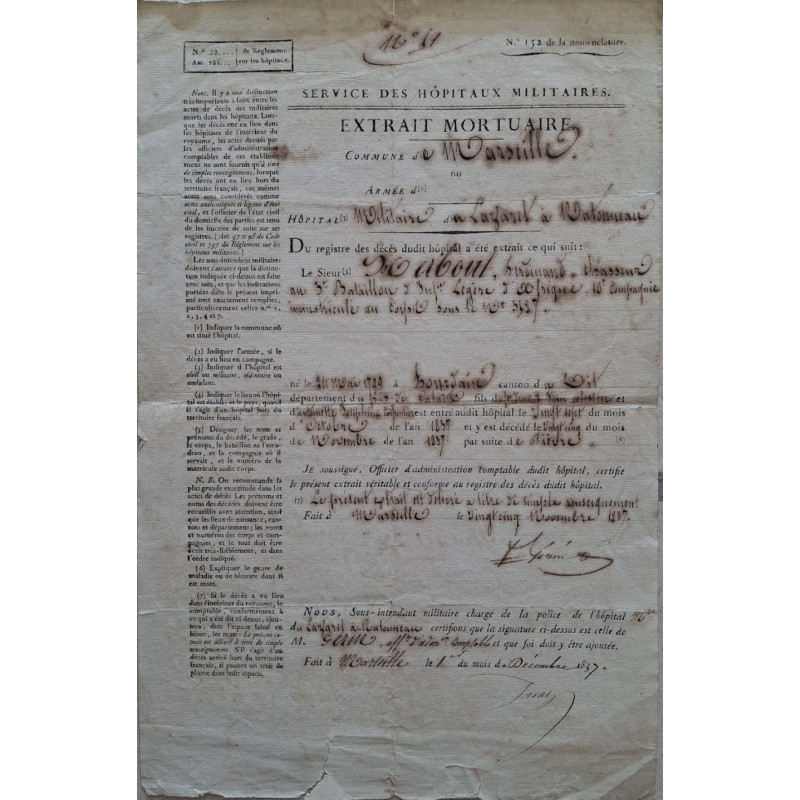 No 61
N.° 152 de la nomenclature.
N.° 22.... de Réglement
sur les hôpitaux.
SERVICE DES HÔPITAUX MILITAIRES.
EXTRAIT MORTUAIRE.
COMMUNE de Marseille.
OU
ARMÉE d(2)
HÔPITAL(3) Militaire du Lazaret à Ratonneau
DU registre des décès dudit hôpital a été extrait ce qui suit:
Le Sieur(5) Maboul, Ferdinand, Chasseur
au 3e Bataillon d'Infrie Légère d'Afrique, 10e Compagnie
immatriculé au Corps sous le No 3427.
né le 24 Mai 1799 à canton d
département du Pas de Calais fils de
et d'Antoinette Joséphine est entré audit hôpital le Vingt sept du mois
d'Octobre de l'an 1837 et y est décédé le vingt cinq du mois
de Novembre de l'an 1837 par suite de fièvre (6)
JE soussigné, Officier d'administration comptable dudit hôpital, certifie
le présent extrait véritable et conforme au registre des décès dudit hôpital.
(7) Le présent extrait est délivré à titre de simple renseignement
Fait à Marseille le vingt cinq Novembre 1837.
NOUS, Sous-intendant militaire chargé de la police de l'hôpital Mre
du Lazaret à Ratonneau certifions que la signature ci-dessus est celle de
M. offr d'admon comptable et que foi doit y être ajoutée.
Fait à Marseille le 1er du mois de Décembre 1837.
Nota. Il y a une distinction
très-importante à faire entre les
actes de décès des militaires
morts dans les hôpitaux. Lors-
que les décès ont eu lieu dans
les hôpitaux de l'intérieur du
royaume, les actes dressés par
les officiers d'administration
comptables de ces établisse-
mens ne sont fournis qu'à titre
de simples renseignemens, lorsque
les décès ont eu lieu hors du
territoire français, ces mêmes
actes sont considérés comme
actes authentiques et légaux d'état
civil, et l'officier de l'état civil
du domicile des parties est tenu
de les inscrire de suite sur ses
registres. (Art. 97 et 98 du Code
civil et 797 du Réglement sur les
hôpitaux militaires.)
Les sous-intendans militaires
doivent s'assurer que la distinction
indiquée ci-dessus est faite
avec soin, et que les indications
portées dans le présent imprimé
sont exactement remplies,
particulièrement celles n.os 1,
2, 3, 4 et 7.
(1) Indiquer la commune où
est situé l'hôpital.
(2) Indiquer l'armée, si le
décès a eu lieu en campagne.
(3) Indiquer si l'hôpital est
civil ou militaire, sédentaire ou
ambulant.
(4) Indiquer le lieu où l'hôpital
est établi; et le pays, quand
il s'agit d'un hôpital hors du
territoire français.
(5) Désigner les nom et
prénoms du décédé, le grade,
le corps, le bataillon ou l'escadron,
et la compagnie où il
servait, et le numéro de la
matricule audit corps.
N. B. On recommande la
plus grande exactitude dans les
actes de décès. Les prénoms et
noms des décédés doivent être
recueillis avec attention, ainsi
que les lieux de naissance, cantons
et département; les noms
et numéros des corps et compagnies,
et le tout doit être
écrit très-lisiblement, et dans
l'ordre indiqué.
(6) Expliquer le genre de
maladie ou de blessure dont il
est mort.
(7) Si le décès a eu lieu
dans l'intérieur du royaume, le
comptable, conformément à
ce qui a été dit ci-dessus, ajoutera,
dans l'espace laissé en
blanc, les mots: Le présent extrait
est délivré à titre de simple
renseignement. S'il s'agit d'un
décès arrivé hors du territoire
français, il passera un trait de
plume dans ledit espace.